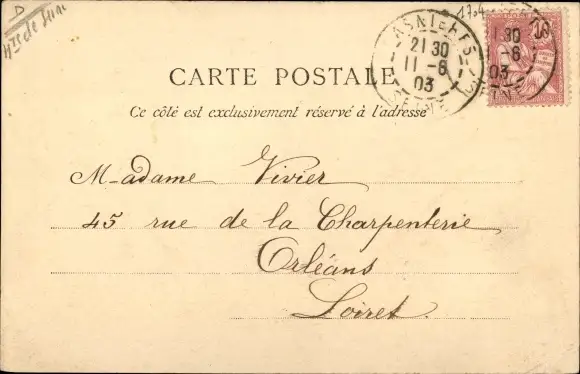 D
Hts de Seine
1704
ASNIÈRES
21 30
11 - 6
03
1 30
- 6
03
10
CARTE POSTALE
Ce côté est exclusivement réservé à l'adresse
Madame Vivier
45 rue de la Charpenterie
Orléans
Loiret.